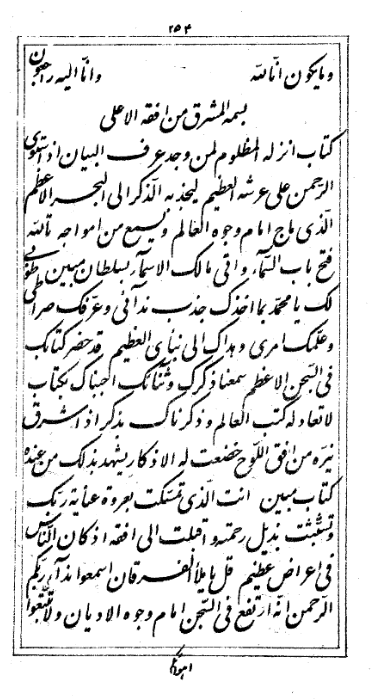 ٢٥٤
وما يكون انّا لله وانّا اليه راجعون
بسمه المشرق من افقه الاعلى
كتاب انزله المظلوم لمن وجد عرف البيان اذ استوى
الرحمن على عرشه العظيم ليجذبه الذكر الى البحر الاعظم
الّذى ماج امام وجوه العالم ويسمع من امواجه تالله
فتح باب السّمآء واتى مالك الاسمآء بسلطان مبين طوبى
لك يا محمّد بما اخذك جذب ندآئى وعرّفك صراطى
وعلّمك امرى وهداك الى نبأى العظيم قد حضر كتابك
فى السّجن الاعظم سمعنا ذكرك وثنائك اجبناك بكتاب
لا تعادله كتب العالم وذكرناك بذكر اذ اشرق
نيّره من افق اللّوح خضعت له الاذكار يشهد بذلك من عنده
كتاب مبين انت الّذى تمسّكت بعروة عناية ربّك
وتشبّثت بذيل رحمته واقبلت الى افقه اذ كان النّاس
فى اعراض عظيم قل يا ملأ الفرقان اسمعوا ندآء ربّكم
الرّحمن انّه ارتفع فى السّجن امام وجوه الاديان ولا تتّبعوا
اهوائكم